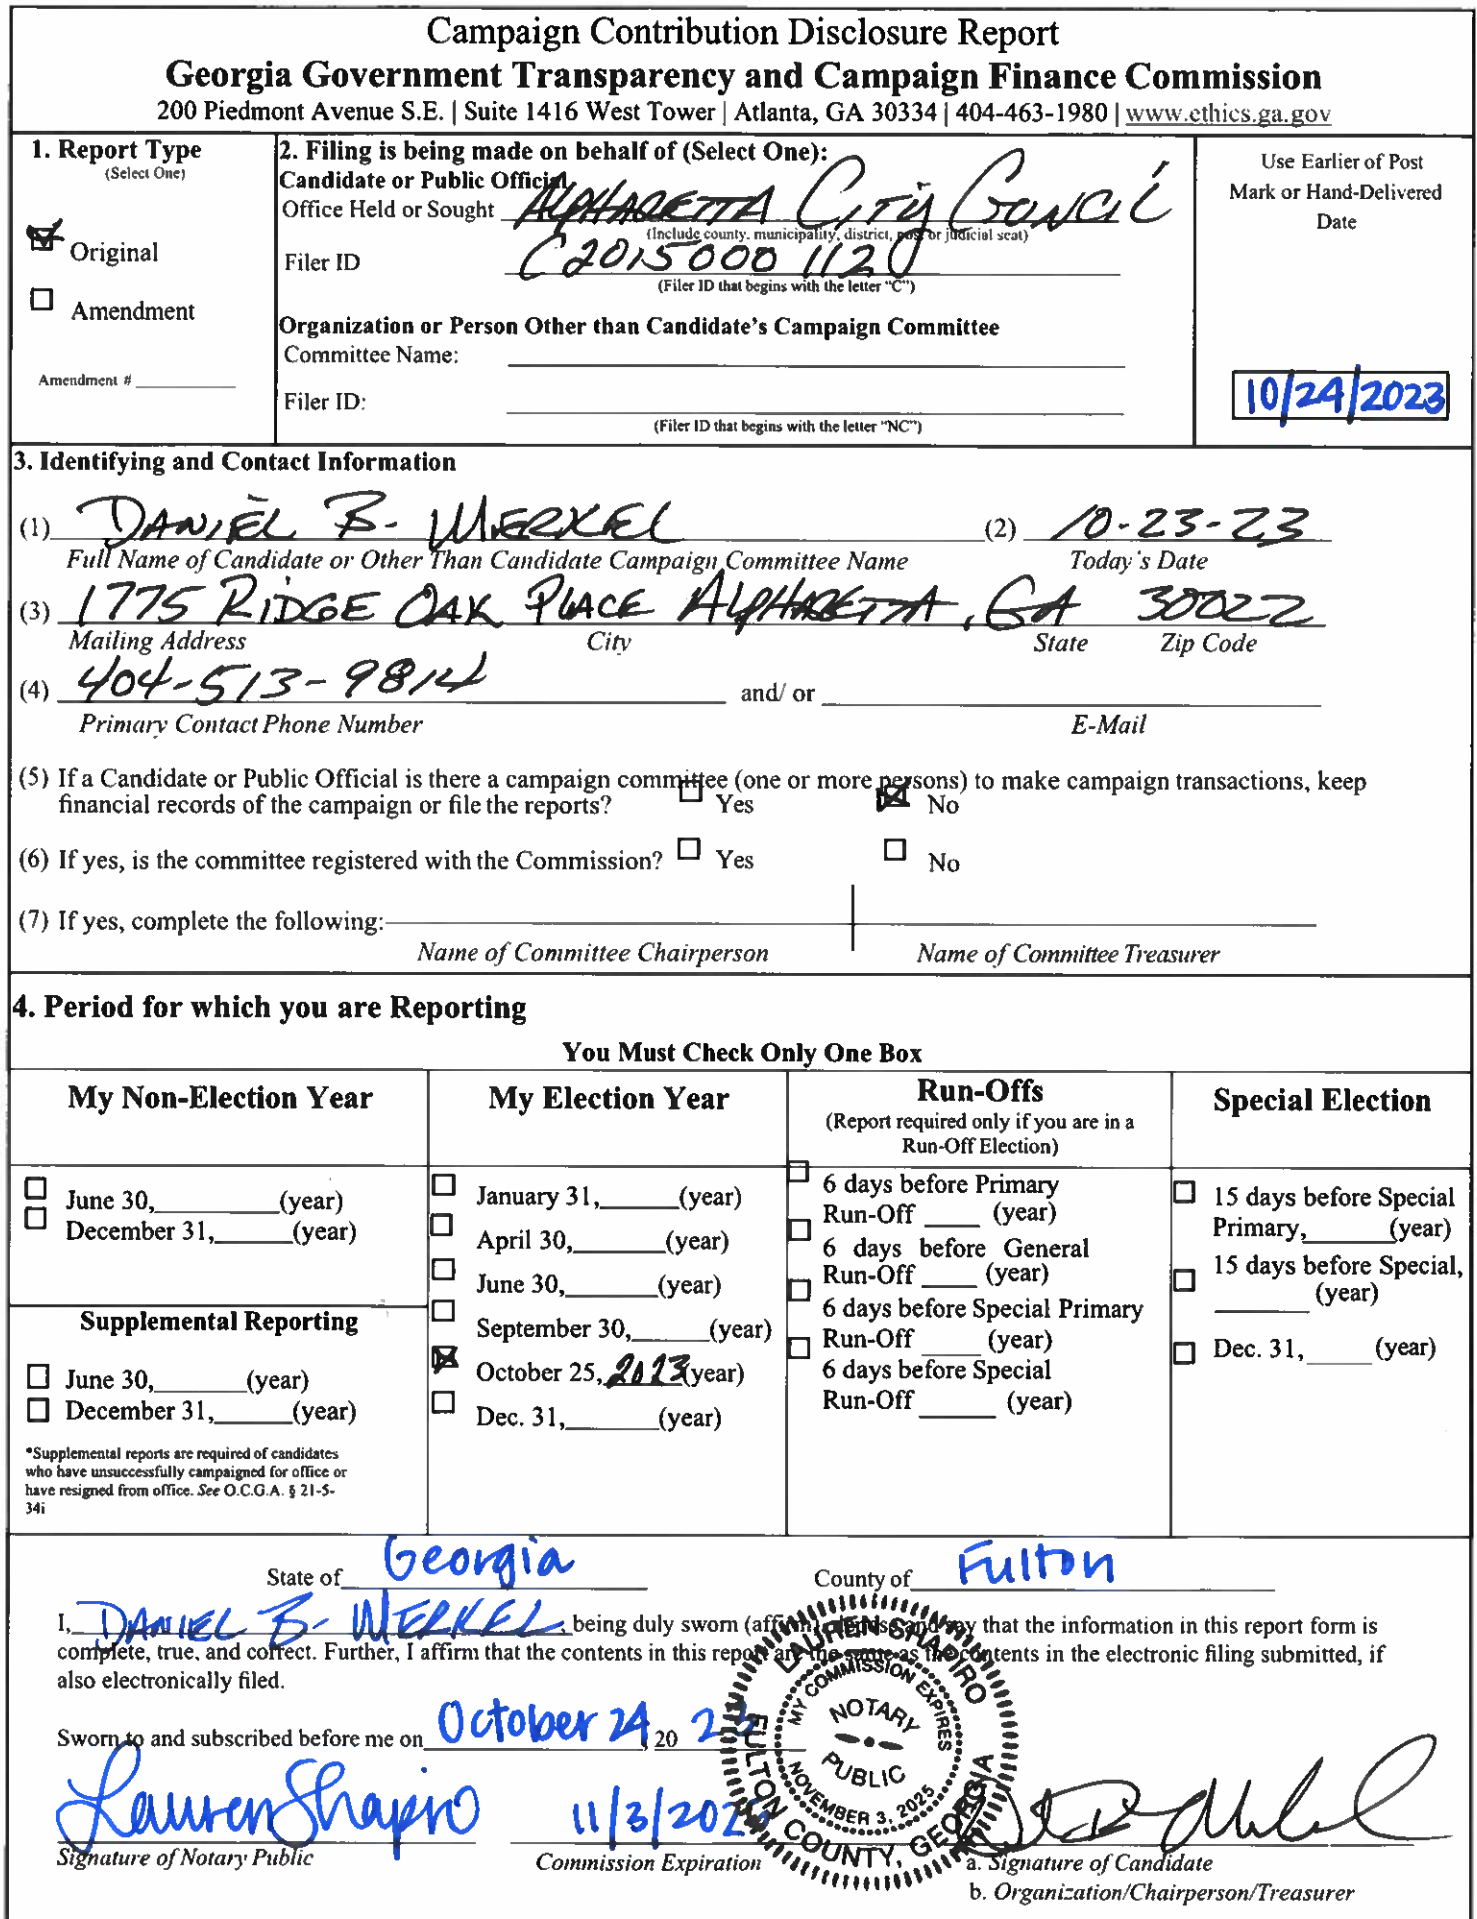 Campaign Contribution Disclosure Report
Georgia Government Transparency and Campaign Finance Commission
200 Piedmont Avenue S.E. | Suite 1416 West Tower | Atlanta, GA 30334 | 404-463-1980 | www.ethics.ga.gov
1. Report Type
(Select One)
Original
Amendment
Amendment #
2. Filing is being made on behalf of (Select One):
Candidate or Public Official
Office Held or Sought ALPHARETTA CITY COUNCIL
(Include county, municipality, district, post or judicial seat)
Filer ID C2015000 1120
(Filer ID that begins with the letter "C")
Organization or Person Other than Candidate's Campaign Committee
Committee Name:
Filer ID:
(Filer ID that begins with the letter "NC")
Use Earlier of Post
Mark or Hand-Delivered
Date
10/24/2023
3. Identifying and Contact Information
(1) DANIEL B. MERKEL (2) 10-23-23
Full Name of Candidate or Other Than Candidate Campaign Committee Name Today's Date
(3) 1775 RIDGE OAK PLACE ALPHARETTA, GA 30022
Mailing Address City State Zip Code
(4) 404-513-9814 and/ or
Primary Contact Phone Number E-Mail
(5) If a Candidate or Public Official is there a campaign committee (one or more persons) to make campaign transactions, keep
financial records of the campaign or file the reports? Yes No
(6) If yes, is the committee registered with the Commission? Yes No
(7) If yes, complete the following:
Name of Committee Chairperson Name of Committee Treasurer
4. Period for which you are Reporting
You Must Check Only One Box
My Non-Election Year
June 30,______(year)
December 31,______(year)
Supplemental Reporting
June 30,______(year)
December 31,______(year)
*Supplemental reports are required of candidates
who have unsuccessfully campaigned for office or
have resigned from office. See O.C.G.A. § 21-5-
34i
My Election Year
January 31,______(year)
April 30,______(year)
June 30,______(year)
September 30,______(year)
October 25, 2023 (year)
Dec. 31,______(year)
Run-Offs
(Report required only if you are in a
Run-Off Election)
6 days before Primary
Run-Off ____ (year)
6 days before General
Run-Off ____ (year)
6 days before Special Primary
Run-Off ____ (year)
6 days before Special
Run-Off ____ (year)
Special Election
15 days before Special
Primary,______(year)
15 days before Special,
______ (year)
Dec. 31, _____ (year)
State of Georgia County of Fulton
I, DANIEL B. MERKEL, being duly sworn (affirm), depose and say that the information in this report form is
complete, true, and correct. Further, I affirm that the contents in this report are the same as the contents in the electronic filing submitted, if
also electronically filed.
Sworn to and subscribed before me on October 24, 20
Lauren Shapiro 11/3/202
Signature of Notary Public Commission Expiration
a. Signature of Candidate
b. Organization/Chairperson/Treasurer
LAUREN SHAPIRO
MY COMMISSION EXPIRES
NOTARY
PUBLIC
NOVEMBER 3, 2025
FULTON COUNTY, GEORGIA